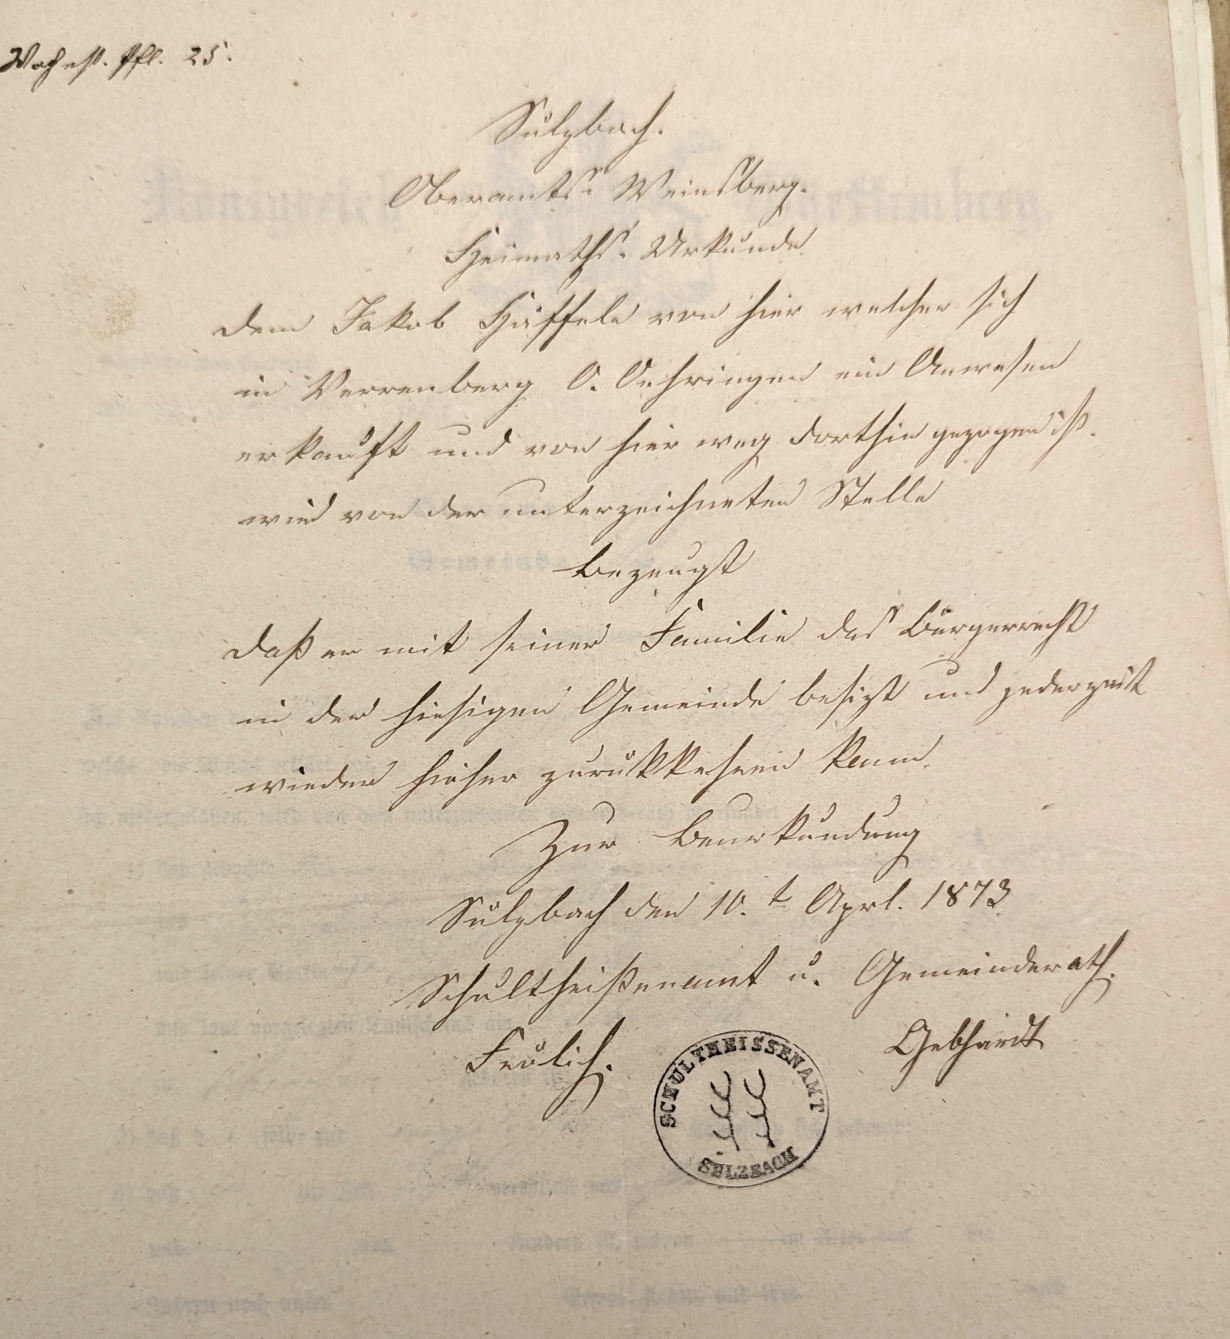 Sulzbach.
Oberamts Weinsberg.
Heimaths-Urkunde.
Dem Jakob Häffele von hier welcher sich
in Verrenberg O. Oehringen ein Anwesen
erkauft und von hier weg dorthin gezogen ist.
wird von der unterzeichneten Stelle
bezeugt
daß er mit seiner Familie das Bürgerrecht
in der hiesigen Gemeinde besizt und jederzeit
wieder hieher zurükkehren kann.
Zur Beurkundung
Sulzbach den 10. t Aprl. 1873
Schultheißenamt u. Gemeinderath.
Frölich. Gebhardt
SCHULTHEISSENAMT
SULZBACH